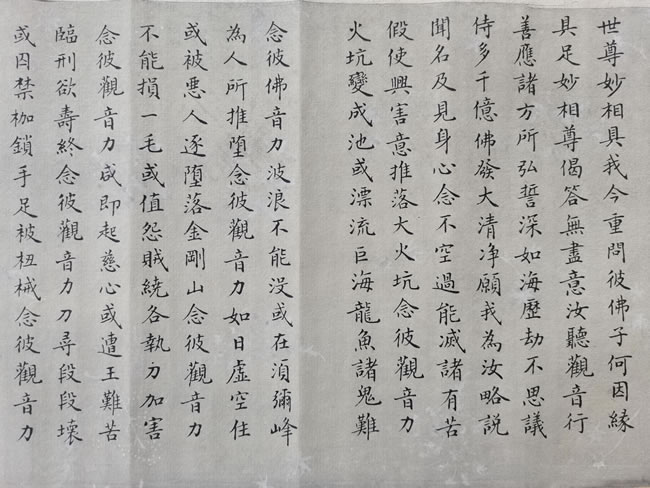 世尊妙相具我今重問彼佛子何因緣
具足妙相尊偈答無盡意汝聽觀音行
善應諸方所弘誓深如海歷劫不思議
侍多千億佛發大清净願我為汝略說
聞名及見身心念不空過能滅諸有苦
假使興害意推落大火坑念彼觀音力
火坑變成池或漂流巨海龍魚諸鬼難
念彼佛音力波浪不能没或在須彌峰
為人所推墮念彼觀音力如日虛空住
或被悪人逐墮落金剛山念彼觀音力
不能損一毛或值怨賊繞各執刀加害
念彼觀音力咸即起慈心或遭王難苦
臨刑欲壽終念彼觀音力刀尋段段壞
或囚禁枷鎖手足被杻械念彼觀音力